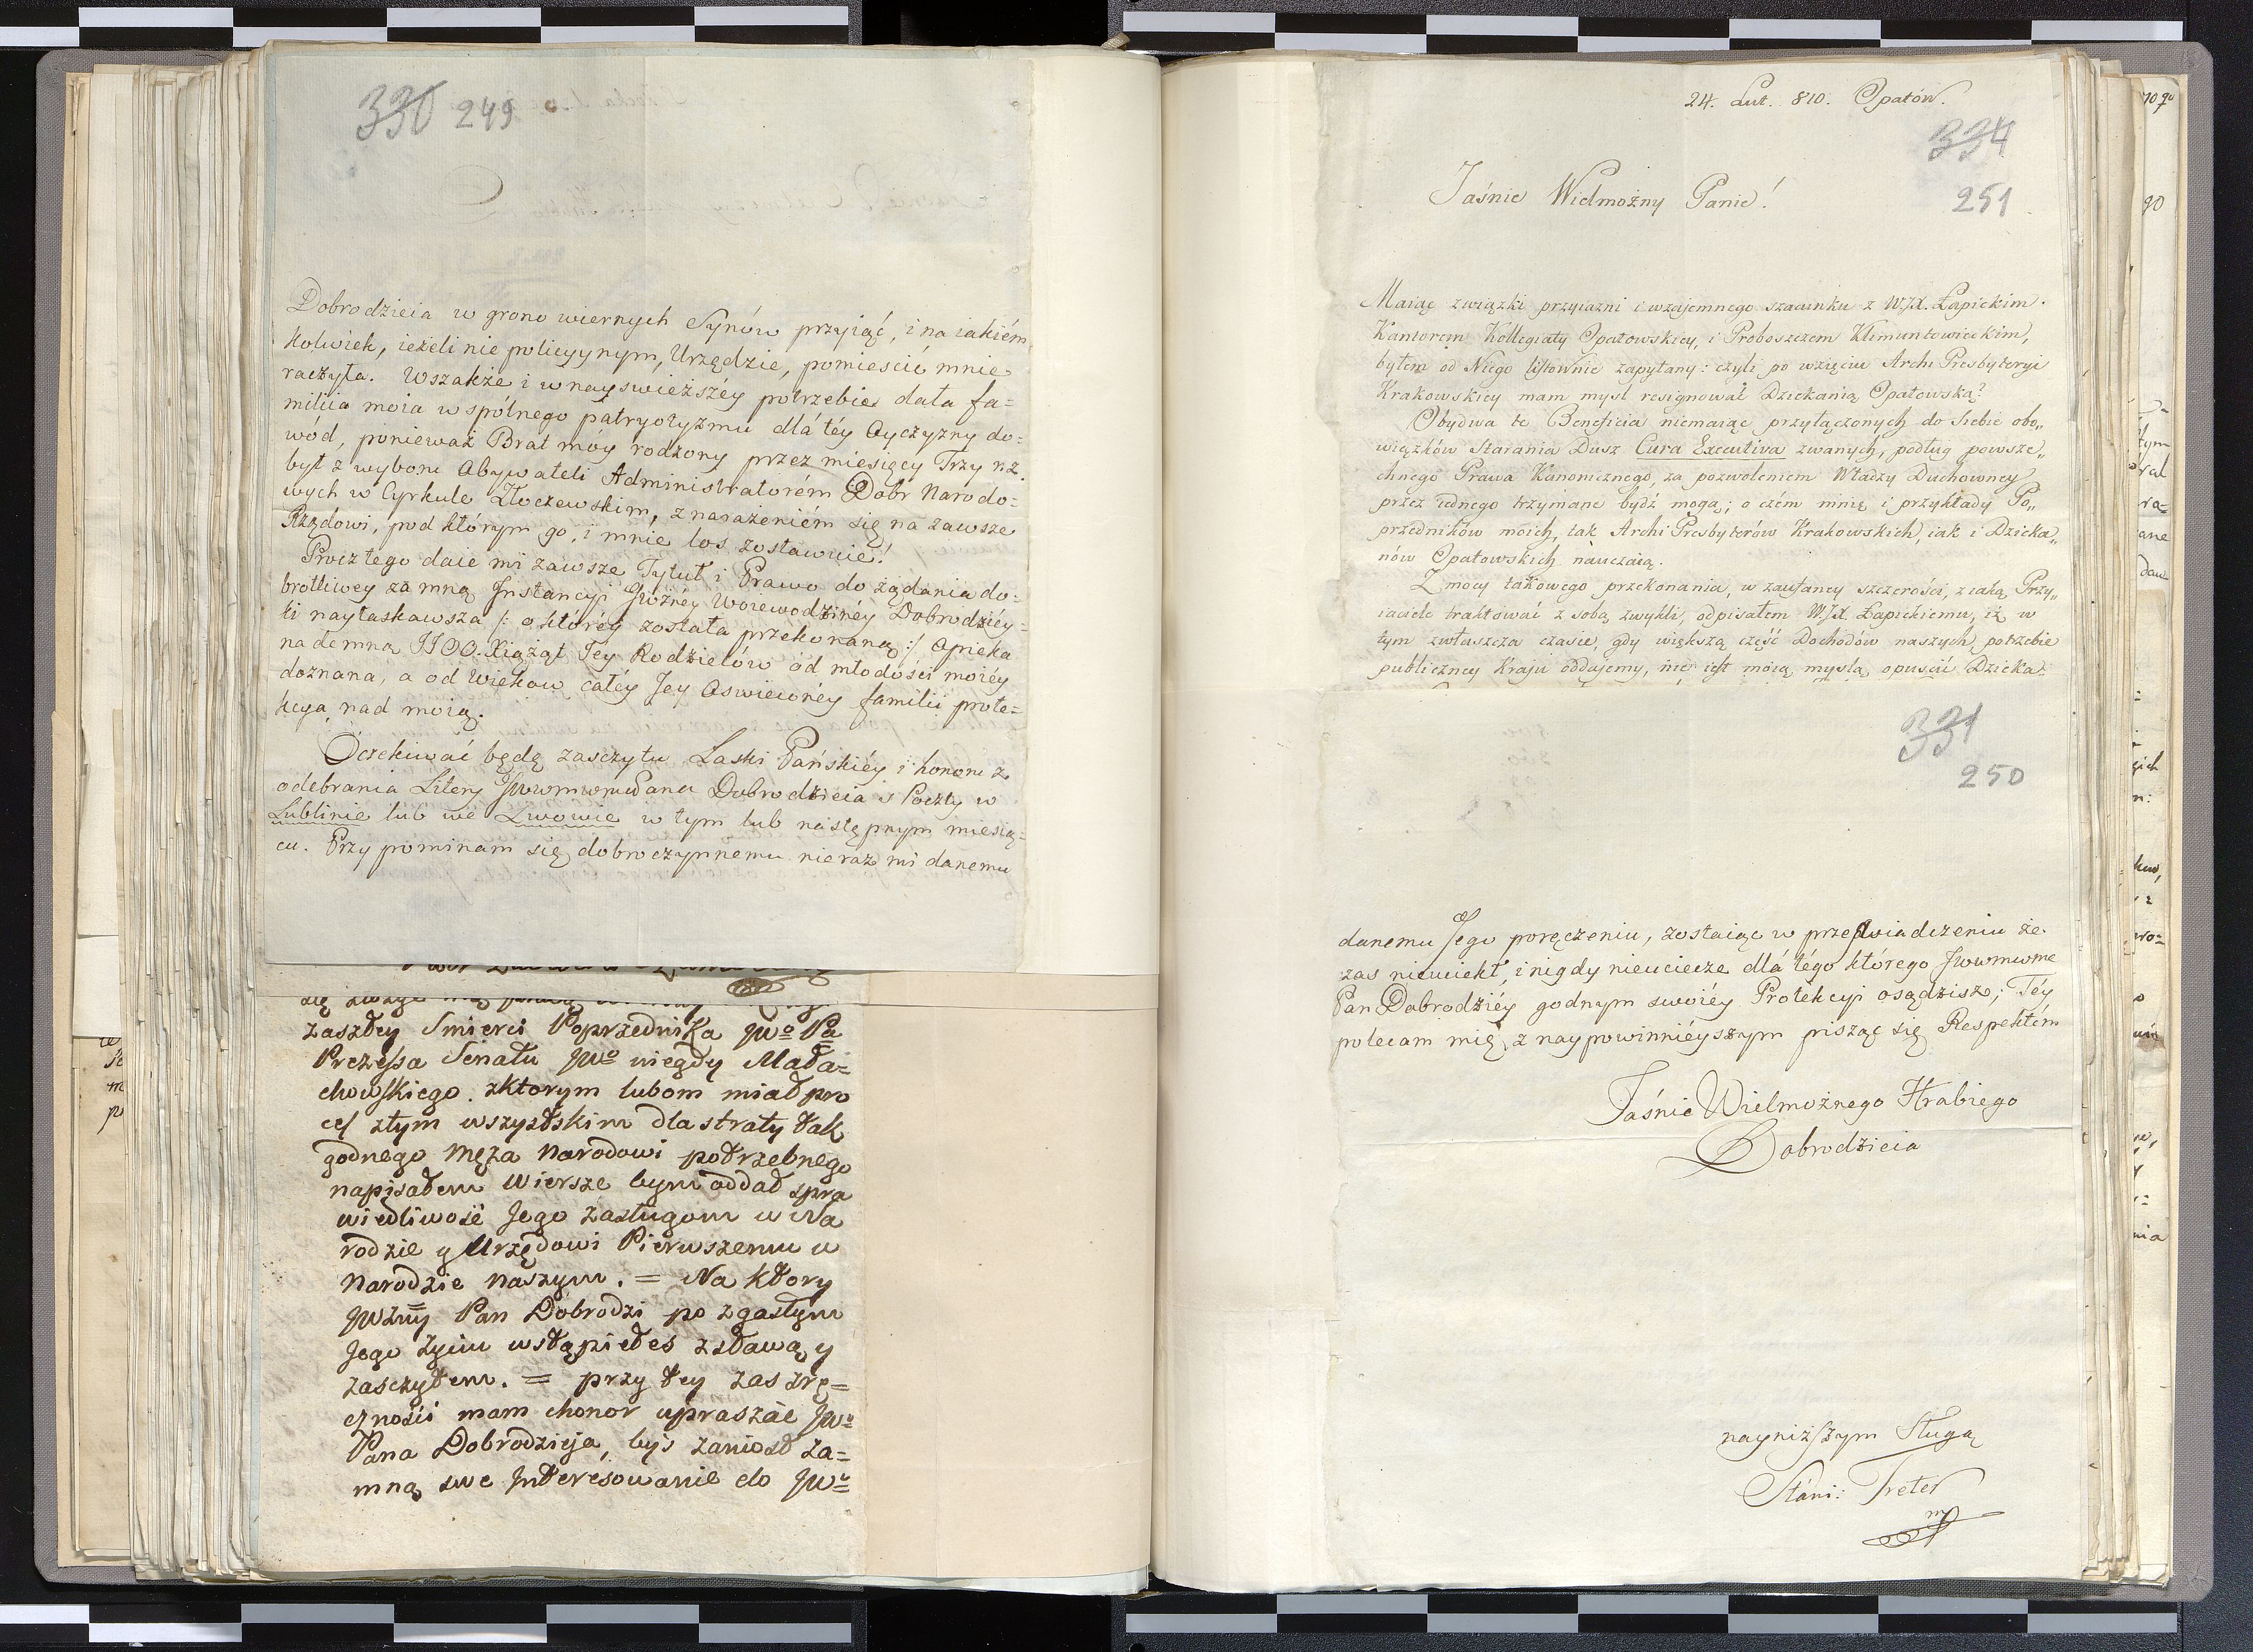 330 249
Dobrodzieia w grono wiernych Synów przyiąć, i na iakiém
kolwiek, ieżeli nie policyynym, Urzędzie, pomieścić mnie
raczyła. Wszakże i w nayswieższéy potrzebie dała fa=
miliia moia wspólnego patryotyzmu dlá téy Oyczyzny do=
wód, ponieważ Brat móy rodzony przez miesięcy Trzy r.z.
był z wyboru Obywateli Administratorém Dobr Narodo=
wych w Cyrkule Złoczowskim, z narażeniém się na zawsze
Rządowi, pod którym go, i mnie los zostawuie!
Procz tego daie mi zawsze Tytuł i Prawo do żądania do=
brotliwey za mną Instancyi JWżnéy Woiewodzinéy Dobrodziéy=
ki nayłaskawsza /: o któréy została przekonaną :/ Opieka
nademną JJOO. Xiążąt Jey Rodzicłów od młodości moiéy
doznana, a od Wieków całéy Jey Oswieconey familii prote=
kcya nad moią.
Oczekiwać będę zasczytu Łaski Pańskiéy i honoru z
odebrania Litery JWWmWmPana Dobrodzieia s Poczty w
Lublinie lub we Lwowie w tym lub następnym miesią=
cu. Przypominam się dobroczynnemu nieraz mi danemu
zaszłey Smierci Poprzednika JWo Pa
Prezessa Senatu JWo niegdy Mała=
chowskiego. z ktorym lubom miał pro
ces z tym wszystskim dla straty tak
godnego Męża Narodowi potrzebnego
napisałem Wiersze bym oddał spra
wiedliwość Jego zasługom w Na
rodzie y Urzędowi Pierwszemu w
Narodzie naszym. = Na ktory
JWżny Pan Dobrodzi po zgasłym
Jego życiu wstąpiłeś z sławą y
zasczytem. = przy tey zas zrę=
cznosci mam chonor upraszać JWo
Pana Dobrodzieja, byś zaniosł za=
mną swe Interesowanie do JWo
24. Lut. 810. Opatów.
334
251
Jaśnie Wielmożny Panie!
Maiąc związki przyiazni i wzaiemnego szacunku z WJX. Łapickim
Kantorem Kollegiaty Opatowskiey, i Proboszczem Klimuntowieckim,
byłem od Niego listownie zapytany: czyli po wzięciu Archi Presbyteryi
Krakowskiey mam mysl resignować Dziekanią Opatowską?
Obydwa te Beneficia niemaiąc przyłączonych do siebie obo„
wiązków Starania Dusz Cura Executiva zwanych, podług powsze„
chnego Prawa Kanonicznego, za pozwoleniem Władzy Duchowney
przez iednego trzymane bydź mogą; o czém mnię i przykłady Po„
przedników moich, tak Archi Presbyterów Krakowskich, iak i Dzieka„
nów Opatowskich nauczaią.
Z mocy takowego przekonania, w zaufaney szczerości, z iaką Przy„
iaciele traktować z sobą zwykli, odpisałem WJX. Łapickiemu, iż w
tym zwłaszcza czasie, gdy większą część Dochodów naszych potrzebie
publiczney Kraju oddajemy, nie iest moią myslą opuscić Dzieka„
331
250
danemu Jego poręczeniu, zostaiąc w przeswiadczeniu że
czas nieuciekł, i nigdy nieuciecze dlá tégo którego JWWmWme
Pan Dobrodziéy godnym swoiéy Protekcyi osądzisz; Téy
polecam mię, z naypowinniéyszym pisząc się Respektém
Jaśnie Wielmożnego Hrabiego
Dobrodzieia
nayniższym Sługą
Stani: Treter